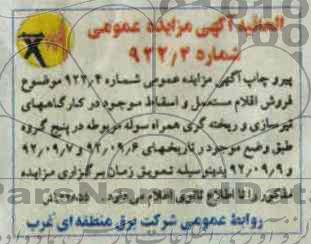 آگهی مزایده عمومی
شماره ۹۲۲٫۴
پیرو چاپ آگهی مزایده عمومی شماره ۹۲۲٫۴ موضوع
فروش اقلام مستعمل و اسقاط موجود در کارگاههای
تیرسازی و ریخته گری همراه سوله مربوطه در پنج گروه
طبق وضع موجود در تاریخهای ۹۲٫۰۹٫۶ و ۹۲٫۰۹٫۷
و ۹۲٫۰۹٫۹ بدینوسیله تعویق زمان برگزاری مزایده
مذکور را تا اطلاع ثانوی اعلام می دارد.
روابط عمومی شرکت برق منطقه ای غرب
ParsNamadData